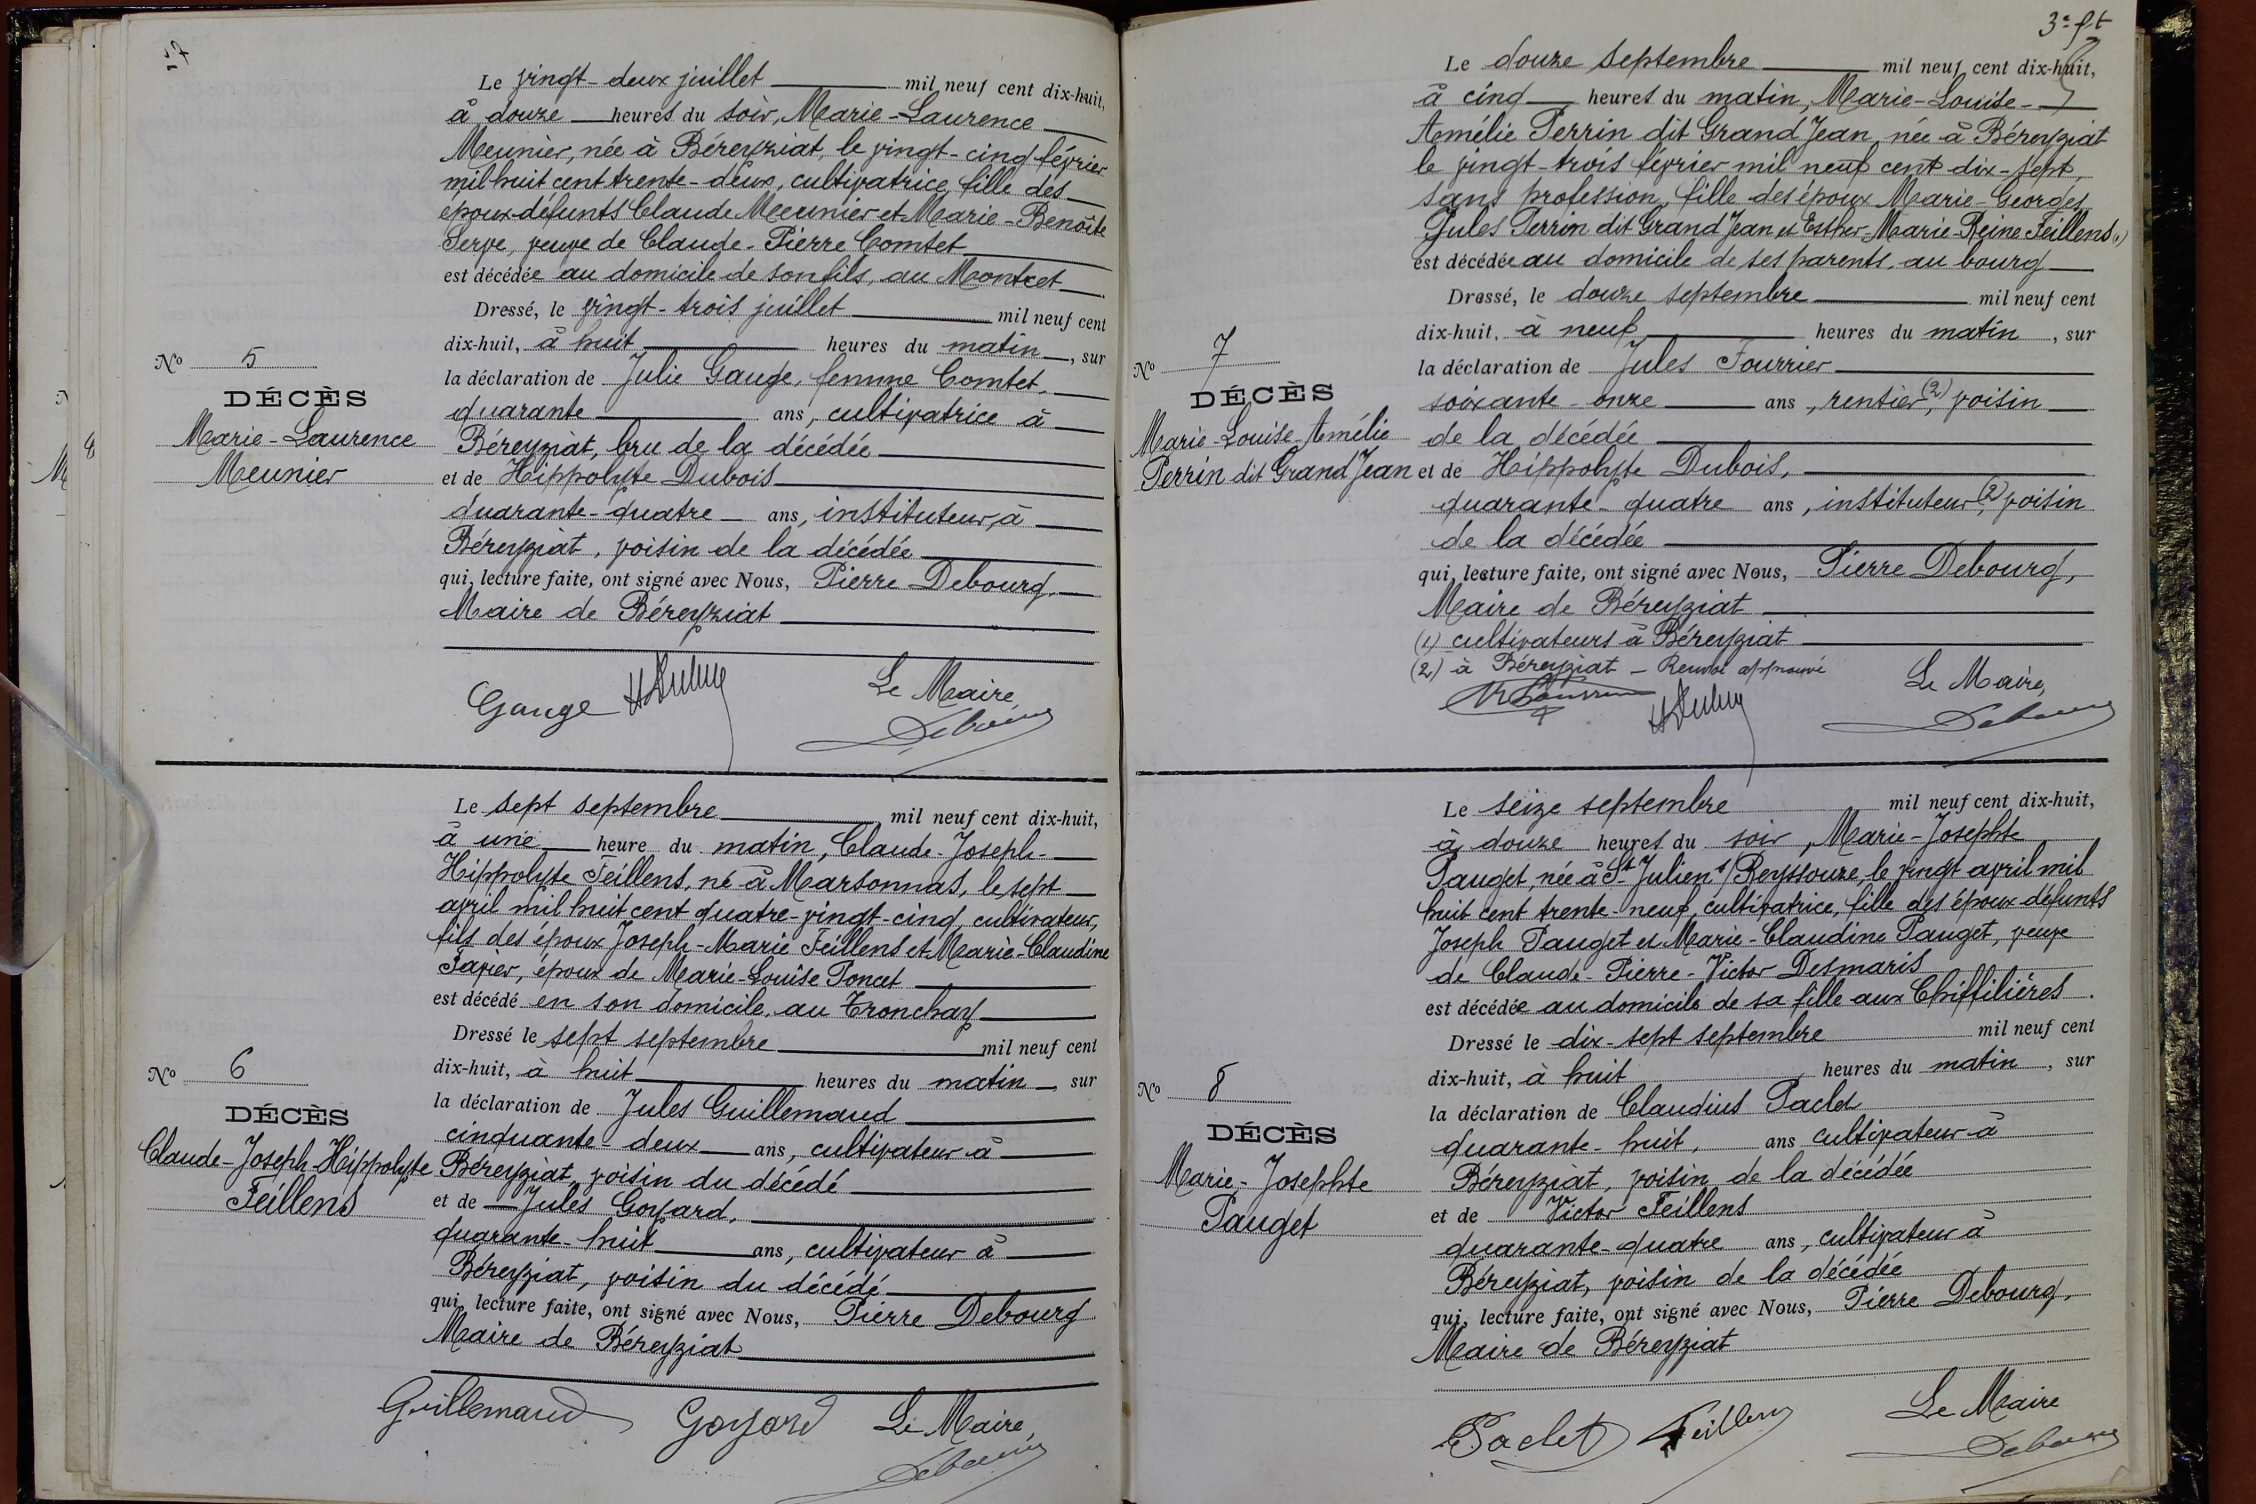 Le vingt-deux juillet mil neuf cent dix-huit,
à douze heures du soir, Marie-Laurence
Meunier, née à Béreyziat, le vingt-cinq février
mil huit cent trente-deux, cultivatrice, fille des
époux défunts Claude Meunier et Marie-Benoîte
Serve, veuve de Claude-Pierre Comtet
est décédée au domicile de son fils, au Montcet
Dressé, le vingt-trois juillet mil neuf cent
dix-huit, à huit heures du matin, sur
la déclaration de Julie Gauge, femme Comtet,
quarante ans, cultivatrice à
Béreyziat, bru de la décédée
et de Hippolyte Dubois
quarante-quatre ans, instituteur, à
Béreyziat, voisin de la décédée
qui, lecture faite, ont signé avec Nous, Pierre Debourg,
Maire de Béreyziat
No 5
DÉCÈS
Marie-Laurence
Meunier
Gauge Le Maire,
Debourg
Le sept septembre mil neuf cent dix-huit,
à une heure du matin, Claude-Joseph-
Hippolyte Feillens, né à Marsonnas, le sept
avril mil huit cent quatre-vingt-cinq, cultivateur,
fils des époux Joseph-Marie Feillens et Marie-Claudine
Favier, époux de Marie-Louise Poncet
est décédé en son domicile, au Tronchay
Dressé le sept septembre mil neuf cent
dix-huit, à huit heures du matin, sur
la déclaration de Jules Guillemaud
cinquante-deux ans, cultivateur à
Béreyziat, voisin du décédé
et de Jules Goyard,
quarante-huit ans, cultivateur à
Béreyziat, voisin du décédé
qui, lecture faite, ont signé avec Nous, Pierre Debourg
Maire de Béreyziat
No 6
DÉCÈS
Claude-Joseph-Hippolyte
Feillens
Guillemaud Goyard Le Maire,
Debourg
3e ft
Le douze septembre mil neuf cent dix-huit,
à cinq heures du matin, Marie-Louise-
Amélie Perrin dit Grand Jean, née à Béreyziat
le vingt-trois février mil neuf cent dix-sept,
sans profession, fille des époux Marie-Georges
Jules Perrin dit Grand Jean et Esther-Marie-Reine Feillens (1)
est décédée au domicile de ses parents, au bourg
Dressé, le douze septembre mil neuf cent
dix-huit, à neuf heures du matin, sur
la déclaration de Jules Fourrier
soixante-onze ans, rentier, (2) voisin
de la décédée
et de Hippolyte Dubois,
quarante-quatre ans, instituteur, (2) voisin
de la décédée
qui, lecture faite, ont signé avec Nous, Pierre Debourg,
Maire de Béreyziat
(1) cultivateurs à Béreyziat
(2) à Béreyziat - Renvoi approuvé
No 7
DÉCÈS
Marie-Louise-Amélie
Perrin dit Grand Jean
Le Maire,
Debourg
Le seize septembre mil neuf cent dix-huit,
à douze heures du soir, Marie-Josephte
Pauget, née à St Julien s/Reyssouze, le vingt avril mil
huit cent trente-neuf, cultivatrice, fille des époux défunts
Joseph Pauget et Marie-Claudine Pauget, veuve
de Claude-Pierre-Victor Desmaris
est décédée au domicile de sa fille aux Chiffilières.
Dressé le dix-sept septembre mil neuf cent
dix-huit, à huit heures du matin, sur
la déclaration de Claudius Paclet
quarante-huit, ans cultivateur à
Béreyziat, voisin de la décédée
et de Victor Feillens
quarante-quatre ans, cultivateur à
Béreyziat, voisin de la décédée
qui, lecture faite, ont signé avec Nous, Pierre Debourg,
Maire de Béreyziat
No 8
DÉCÈS
Marie-Josephte
Pauget
Paclet Feillens Le Maire
Debourg